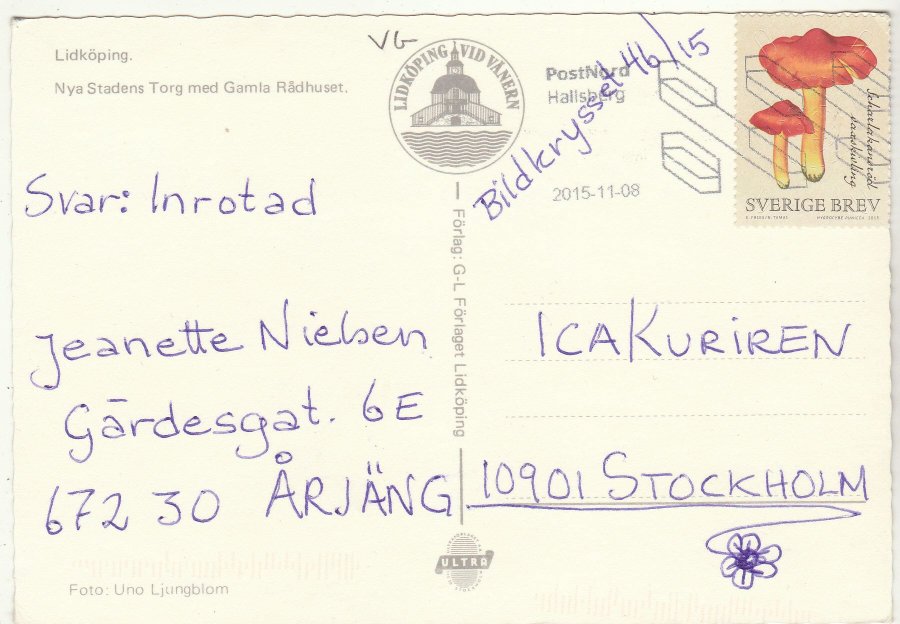 Lidköping.
Nya Stadens Torg med Gamla Rådhuset.
VG
LIDKÖPING VID VÄNERN
Bildkrysset 46/15
PostNord
Hallsberg
2015-11-08
Scharlakansröd
vaxskivling
SVERIGE BREV
HYGROCYBE PUNICEA 2015
Svar: Inrotad
Jeanette Nielsen
Gärdesgat. 6E
672 30 ÅRJÄNG
Förlag: G-L Förlaget Lidköping
ICAKURIREN
10901 STOCKHOLM
ULTRA
Foto: Uno Ljungblom